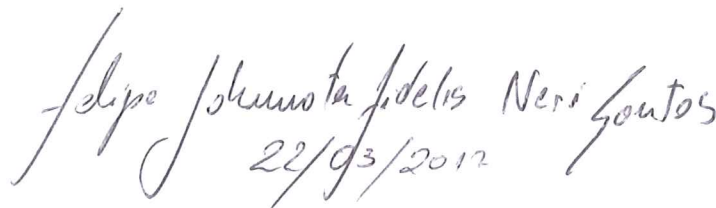 Felipe Fidelis Neri Santos
22/03/2012